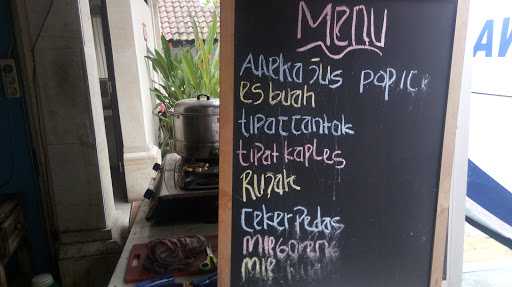 Menu
Aneka Jus POP ICE
es buah
tipat cantok
tipat kaples
Rujak
Ceker Pedas
MIE Goreng
MIE